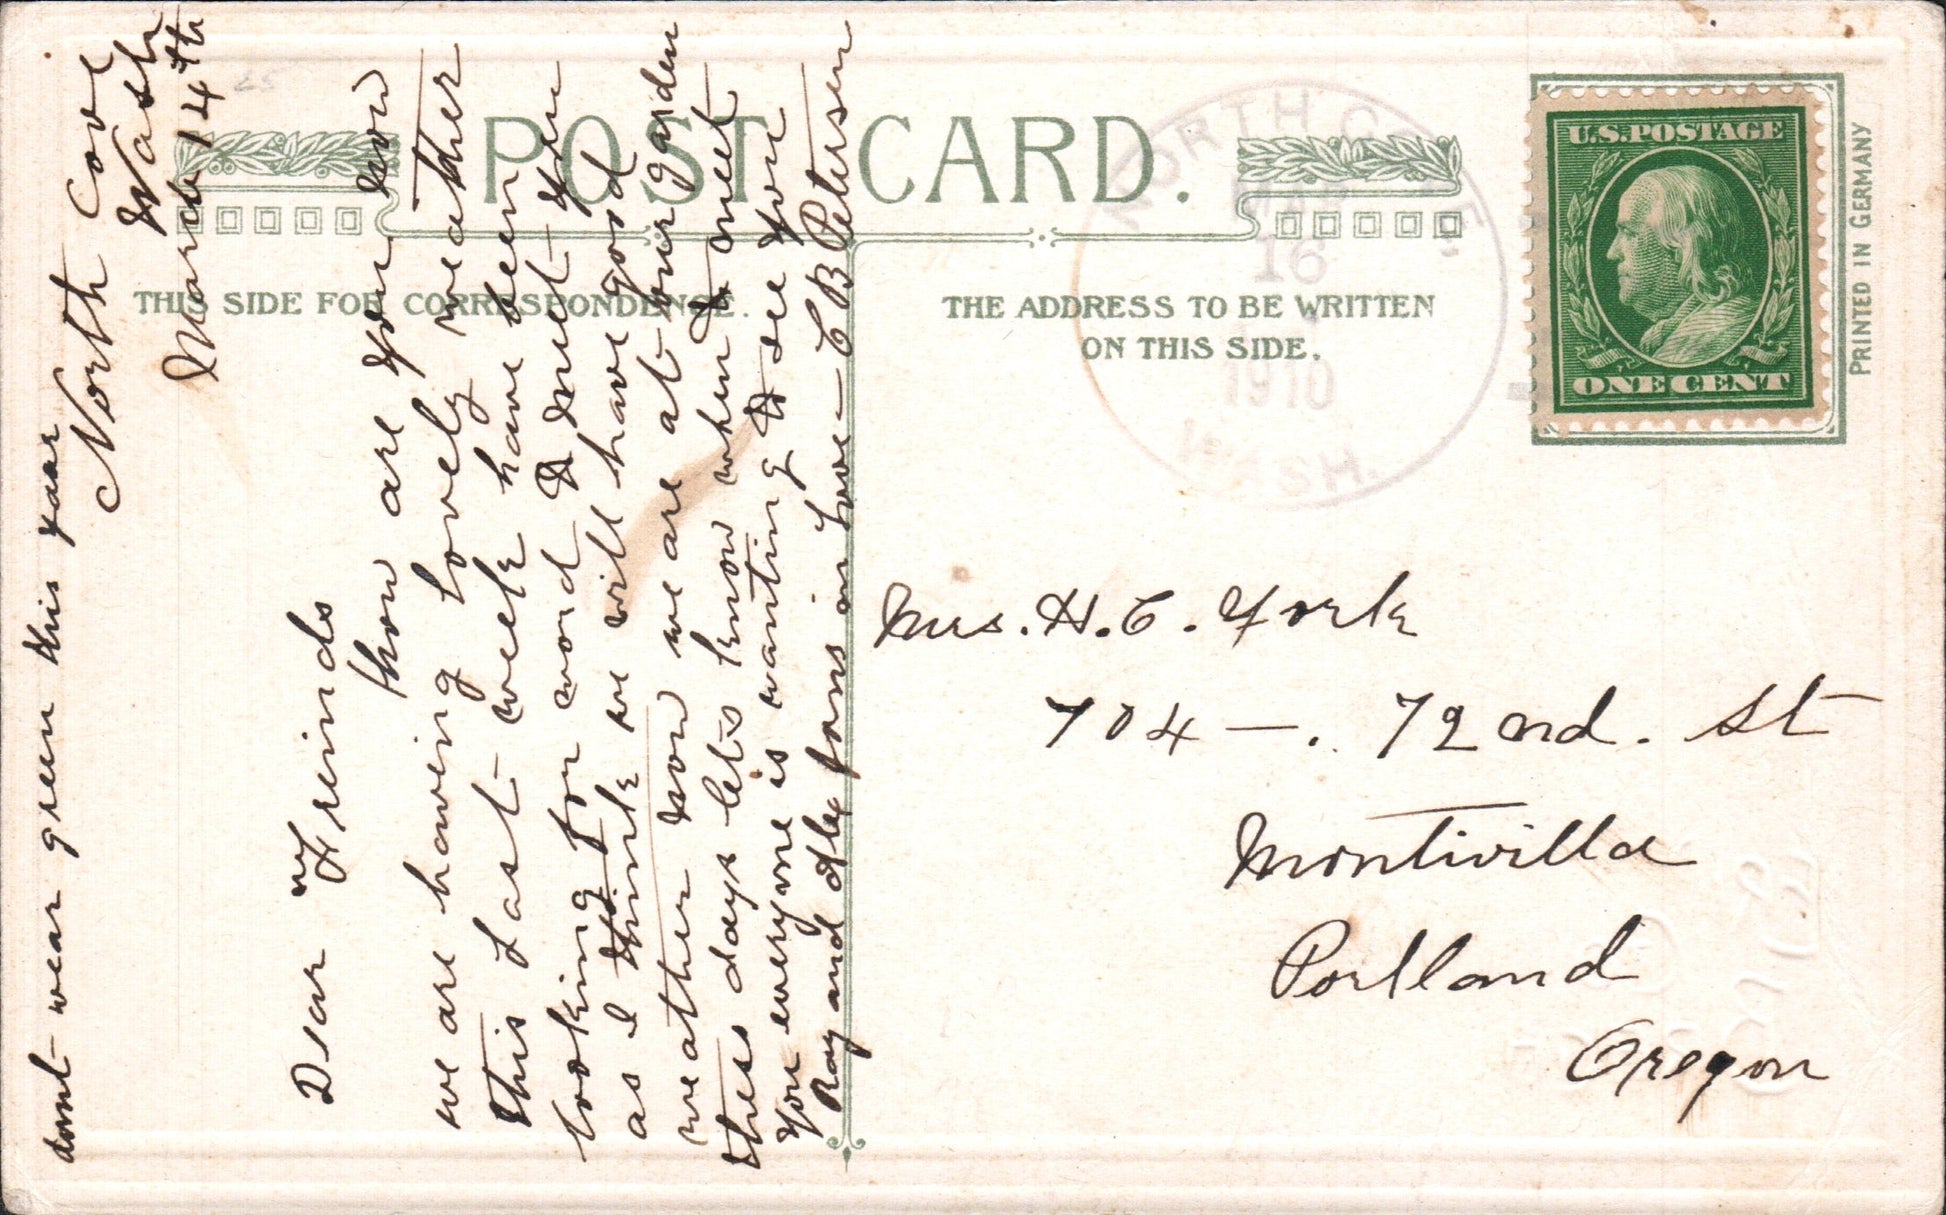 POST CARD.
THIS SIDE FOR CORRESPONDENCE.
THE ADDRESS TO BE WRITTEN
ON THIS SIDE.
NORTH COVE,
MAR
16
1910
WASH.
U.S.POSTAGE
ONE CENT
PRINTED IN GERMANY
dont wear green this year
North Cove
Wash
March 14th
Dear Freinds
how are you now
we are having Lovely weather
this Last week have been
looking for word & meet you
as I think we will have good
weather now we are at our garden
thess days lets know when to meet
you everyone is wanting to see you
Ray and Alex joins in Love - C B Petersen
Mrs. H. C. York
704 -. 72nd. St
Montivilla
Portland
Oregon